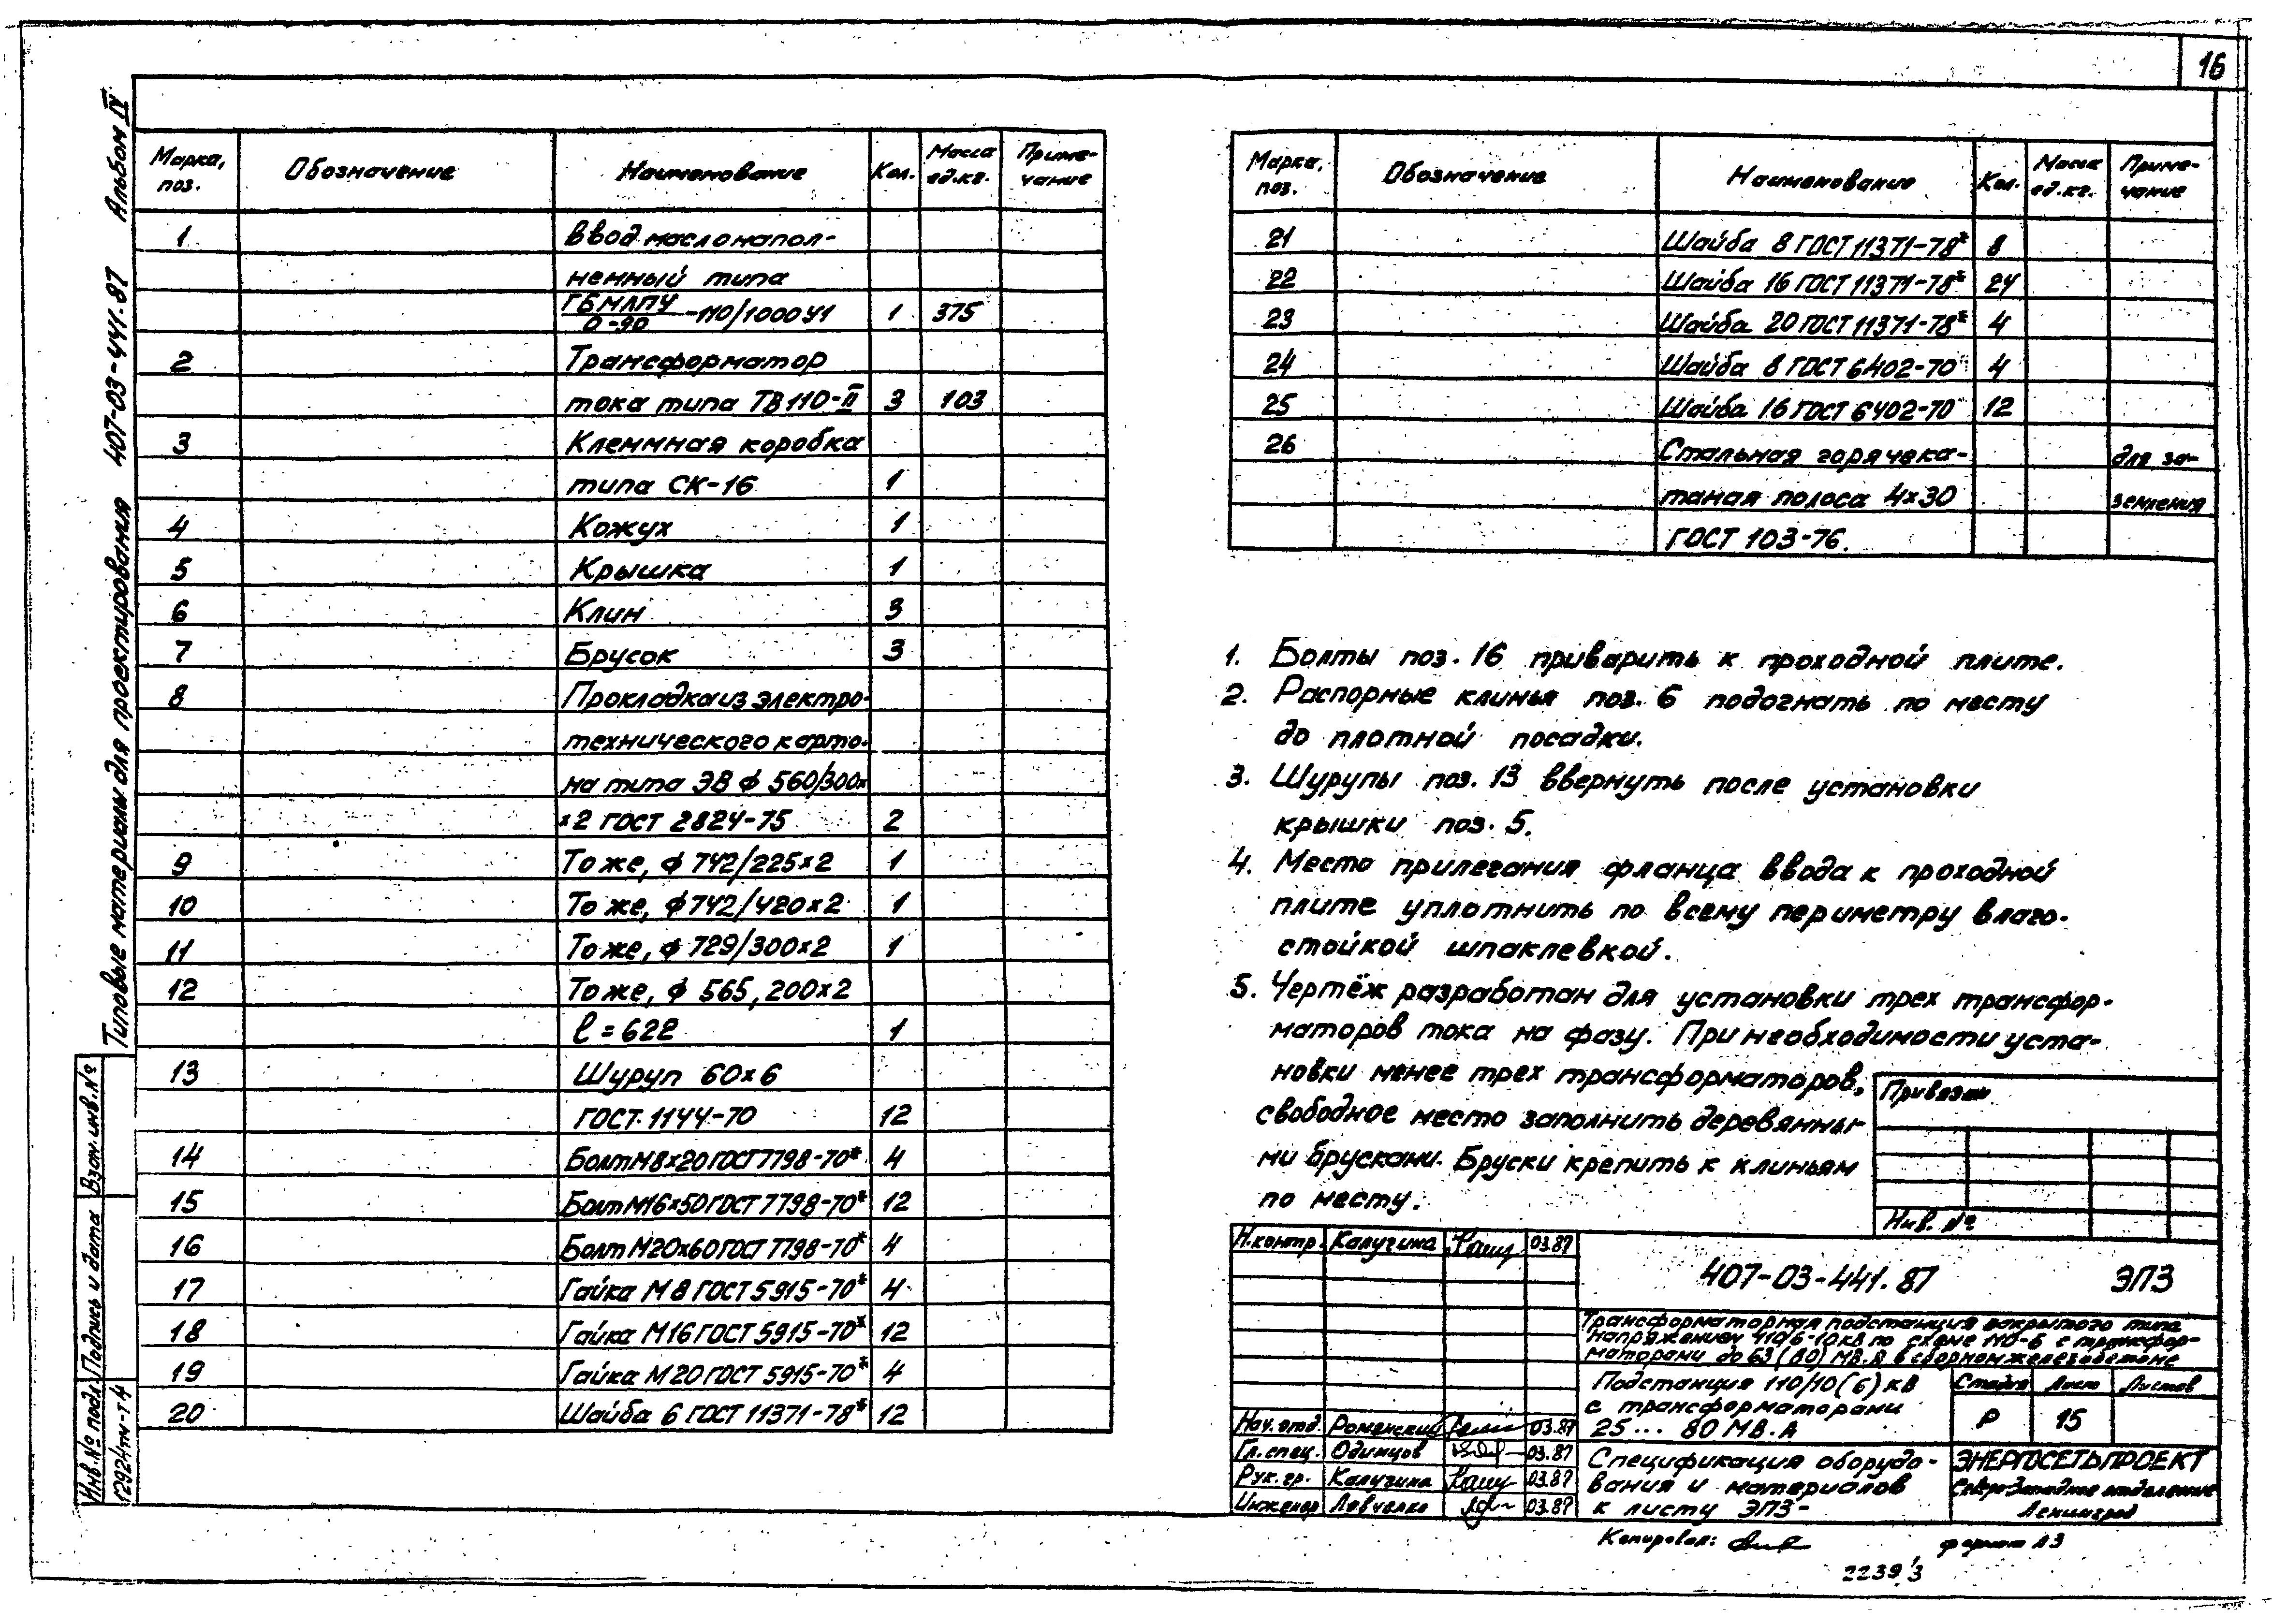 16
Типовые материалы для проектирования 407-03-441.87 Альбом IV
Марка, поз. Обозначение Наименование Кол. Масса ед.кг. Примечание
1 Ввод маслонапол-
ненный типа
ГБМЛПУ/0-90 -110/1000У1 1 375
2 Трансформатор
тока типа ТВ110-II 3 103
3 Клеммная коробка
типа СК-16 1
4 Кожух 1
5 Крышка 1
6 Клин 3
7 Брусок 3
8 Прокладка из электро-
технического карто-
на типа ЭВ ф 560/300х
х2 ГОСТ 2824-75 2
9 То же, ф 742/225х2 1
10 То же, ф 742/420х2 1
11 То же, ф 729/300х2 1
12 То же, ф 565, 200х2
ℓ = 622 1
13 Шуруп 60х6
ГОСТ 1144-70 12
14 Болт М8х20 ГОСТ 7798-70* 4
15 Болт М16х50 ГОСТ 7798-70* 12
16 Болт М20х60 ГОСТ 7798-70* 4
17 Гайка М8 ГОСТ 5915-70* 4
18 Гайка М16 ГОСТ 5915-70* 12
19 Гайка М20 ГОСТ 5915-70* 4
20 Шайба 6 ГОСТ 11371-78* 12
Марка, поз. Обозначение Наименование Кол. Масса ед.кг. Примечание
21 Шайба 8 ГОСТ 11371-78* 8
22 Шайба 16 ГОСТ 11371-78* 24
23 Шайба 20 ГОСТ 11371-78* 4
24 Шайба 8 ГОСТ 6402-70 4
25 Шайба 16 ГОСТ 6402-70 12
26 Стальная горячека- для за-
таная полоса 4х30 земления
ГОСТ 103-76.
1. Болты поз. 16 приварить к проходной плите.
2. Распорные клинья поз. 6 подогнать по месту
до плотной посадки.
3. Шурупы поз. 13 ввернуть после установки
крышки поз. 5.
4. Место прилегания фланца ввода к проходной
плите уплотнить по всему периметру влаго-
стойкой шпаклевкой.
5. Чертёж разработан для установки трех трансфор-
маторов тока на фазу. При необходимости уста-
новки менее трех трансформаторов,
свободное место заполнить деревянны-
ми брусками. Бруски крепить к клиньям
по месту.
Привязан
Инв. №
Н.контр. Калугина 03.87
407-03-441.87 ЭП3
Трансформаторная подстанция закрытого типа
напряжением 110/6-10 кВ по схеме 110-6 с трансфор-
маторами до 63 (80) МВ.А в сборном железобетоне
Подстанция 110/10(6) кВ
с трансформаторами
25... 80 МВ.А
Стадия Лист Листов
Р 15
Нач.отд. Роменский 03.87
Гл.спец. Одинцов 03.87
Рук.гр. Калугина 03.87
Инженер Левченко 03.87
Спецификация оборудо-
вания и материалов
к листу ЭП3-
ЭНЕРГОСЕТЬПРОЕКТ
Северо-Западное отделение
Ленинград
Копировал:
формат А3
2239/3
Взам.инв.№
Подпись и дата
Инв.№ подл.
12924тм-т4